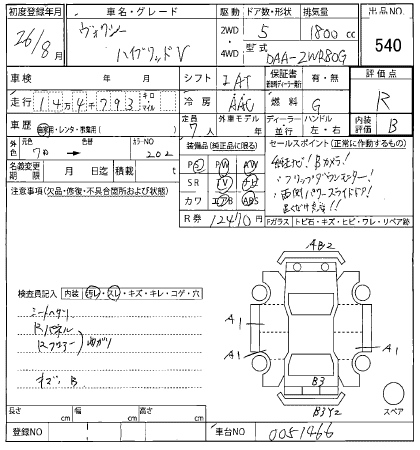 初度登録年月 車名・グレード 駆動 ドア数・形状 排気量 出品NO.
26/8月 ヴォクシー 2WD 5 1800cc 540
ハイブリッドV 4WD 型式 DAA-ZWR80G
車検 年 月 シフト IAT 保証書 有・無 評価点
走行 144793 キロ マイル 冷房 AAC 燃料 G R
車歴 自家用・レンタ・教習用( ) 定員 7人 外車モデル ディーラー 並行 ハンドル 左・右 内装評価 B
外色 元色 色替 カラーNO 202 装備品(純正品に限る) セールスポイント(正常に作動するもの)
名義変更期限 月 日迄 積載 t PS PW AW 純正ナビ!Bカメラ!
注意事項(欠品・修復・不具合箇所および状態) SR TV ナビ フリップダウンモニター!
カワ エアB ABS 両側パワースライドドア!
R券 12470円
Fガラス トビ石・キズ・ヒビ・ワレ・リペア跡
AB2
検査員記入 内装 汚レ・スレ・キズ・キレ・コゲ・穴
シートヘタリ A1 A1
Rパネル
Rフロアー 曲がり A1 A1
キズ、B B3
スペア
長さ cm 幅 cm 高さ cm B3Y2
登録NO 車台NO 0051466